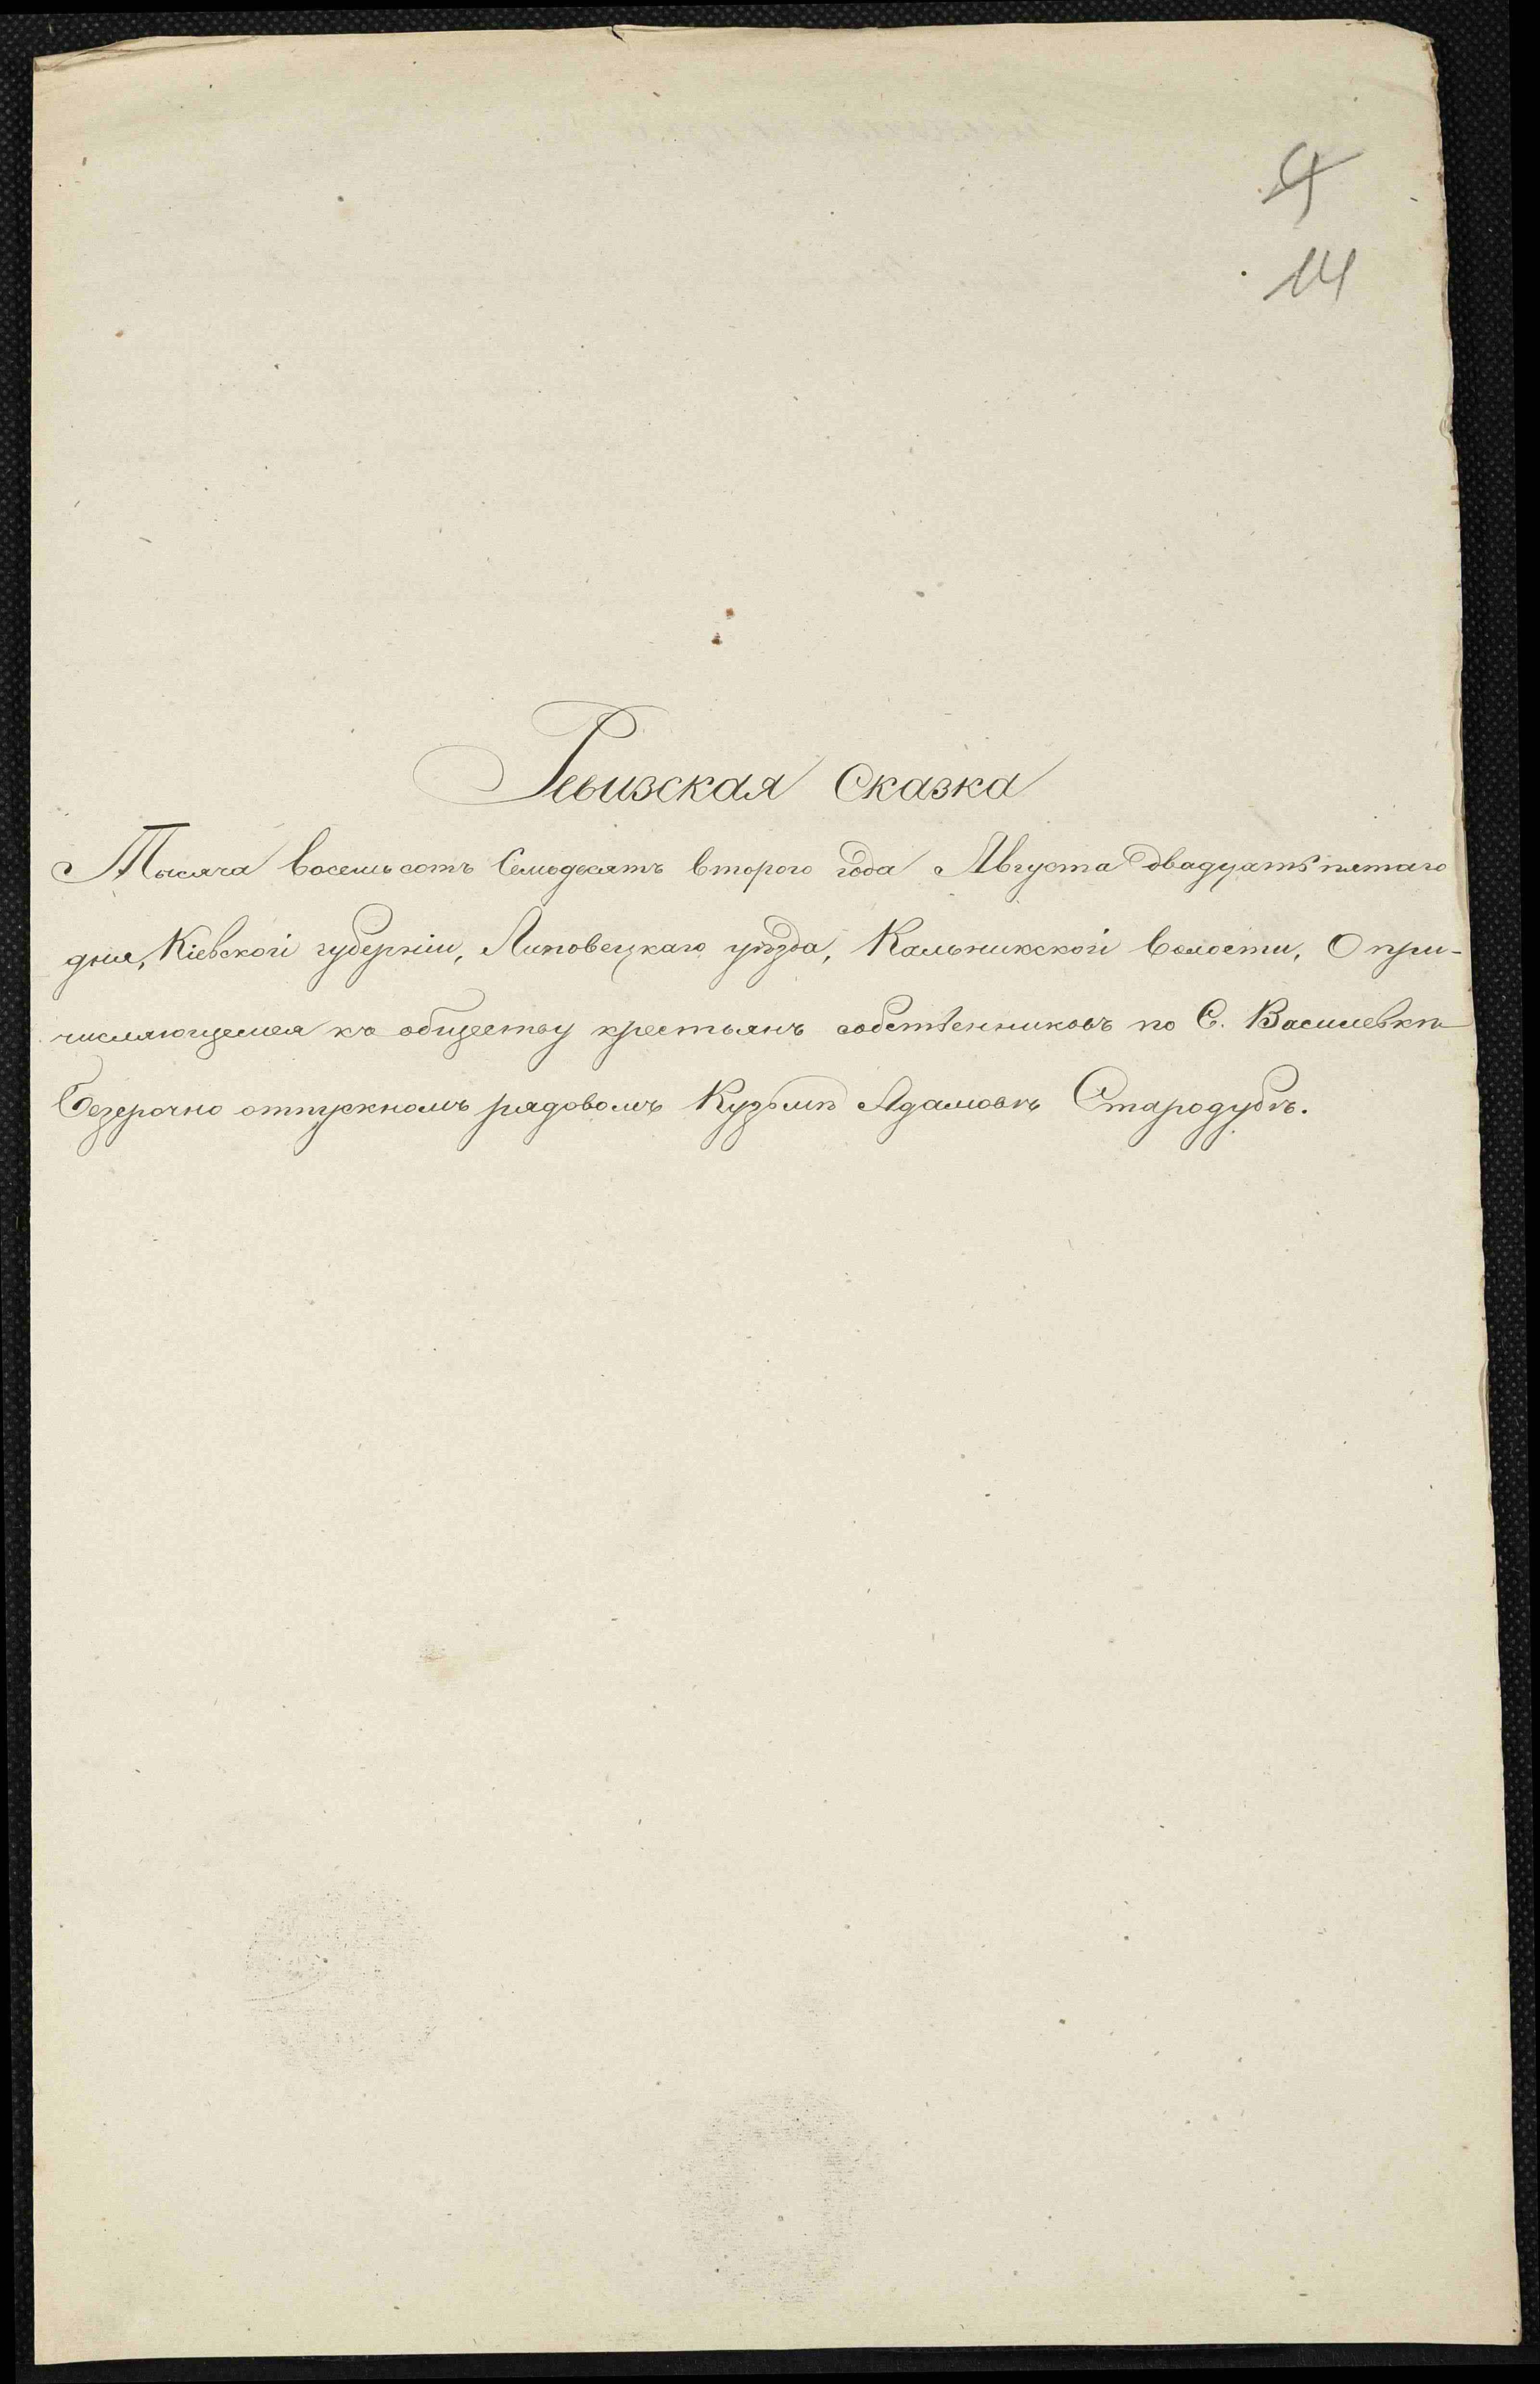 14
Ревизская Сказка
Тысяча восемьсотъ Семьдесятъ второго года Августа двадцать пятаго
дня, Кіевской губерніи, Липовецкаго уѣзда, Кальникской волости, О при-
числяющемся къ обществу крестьянъ собственниковъ по С. Василевкѣ
безсрочно отпускномъ рядовомъ Кузьмѣ Адамовѣ Стародубѣ.